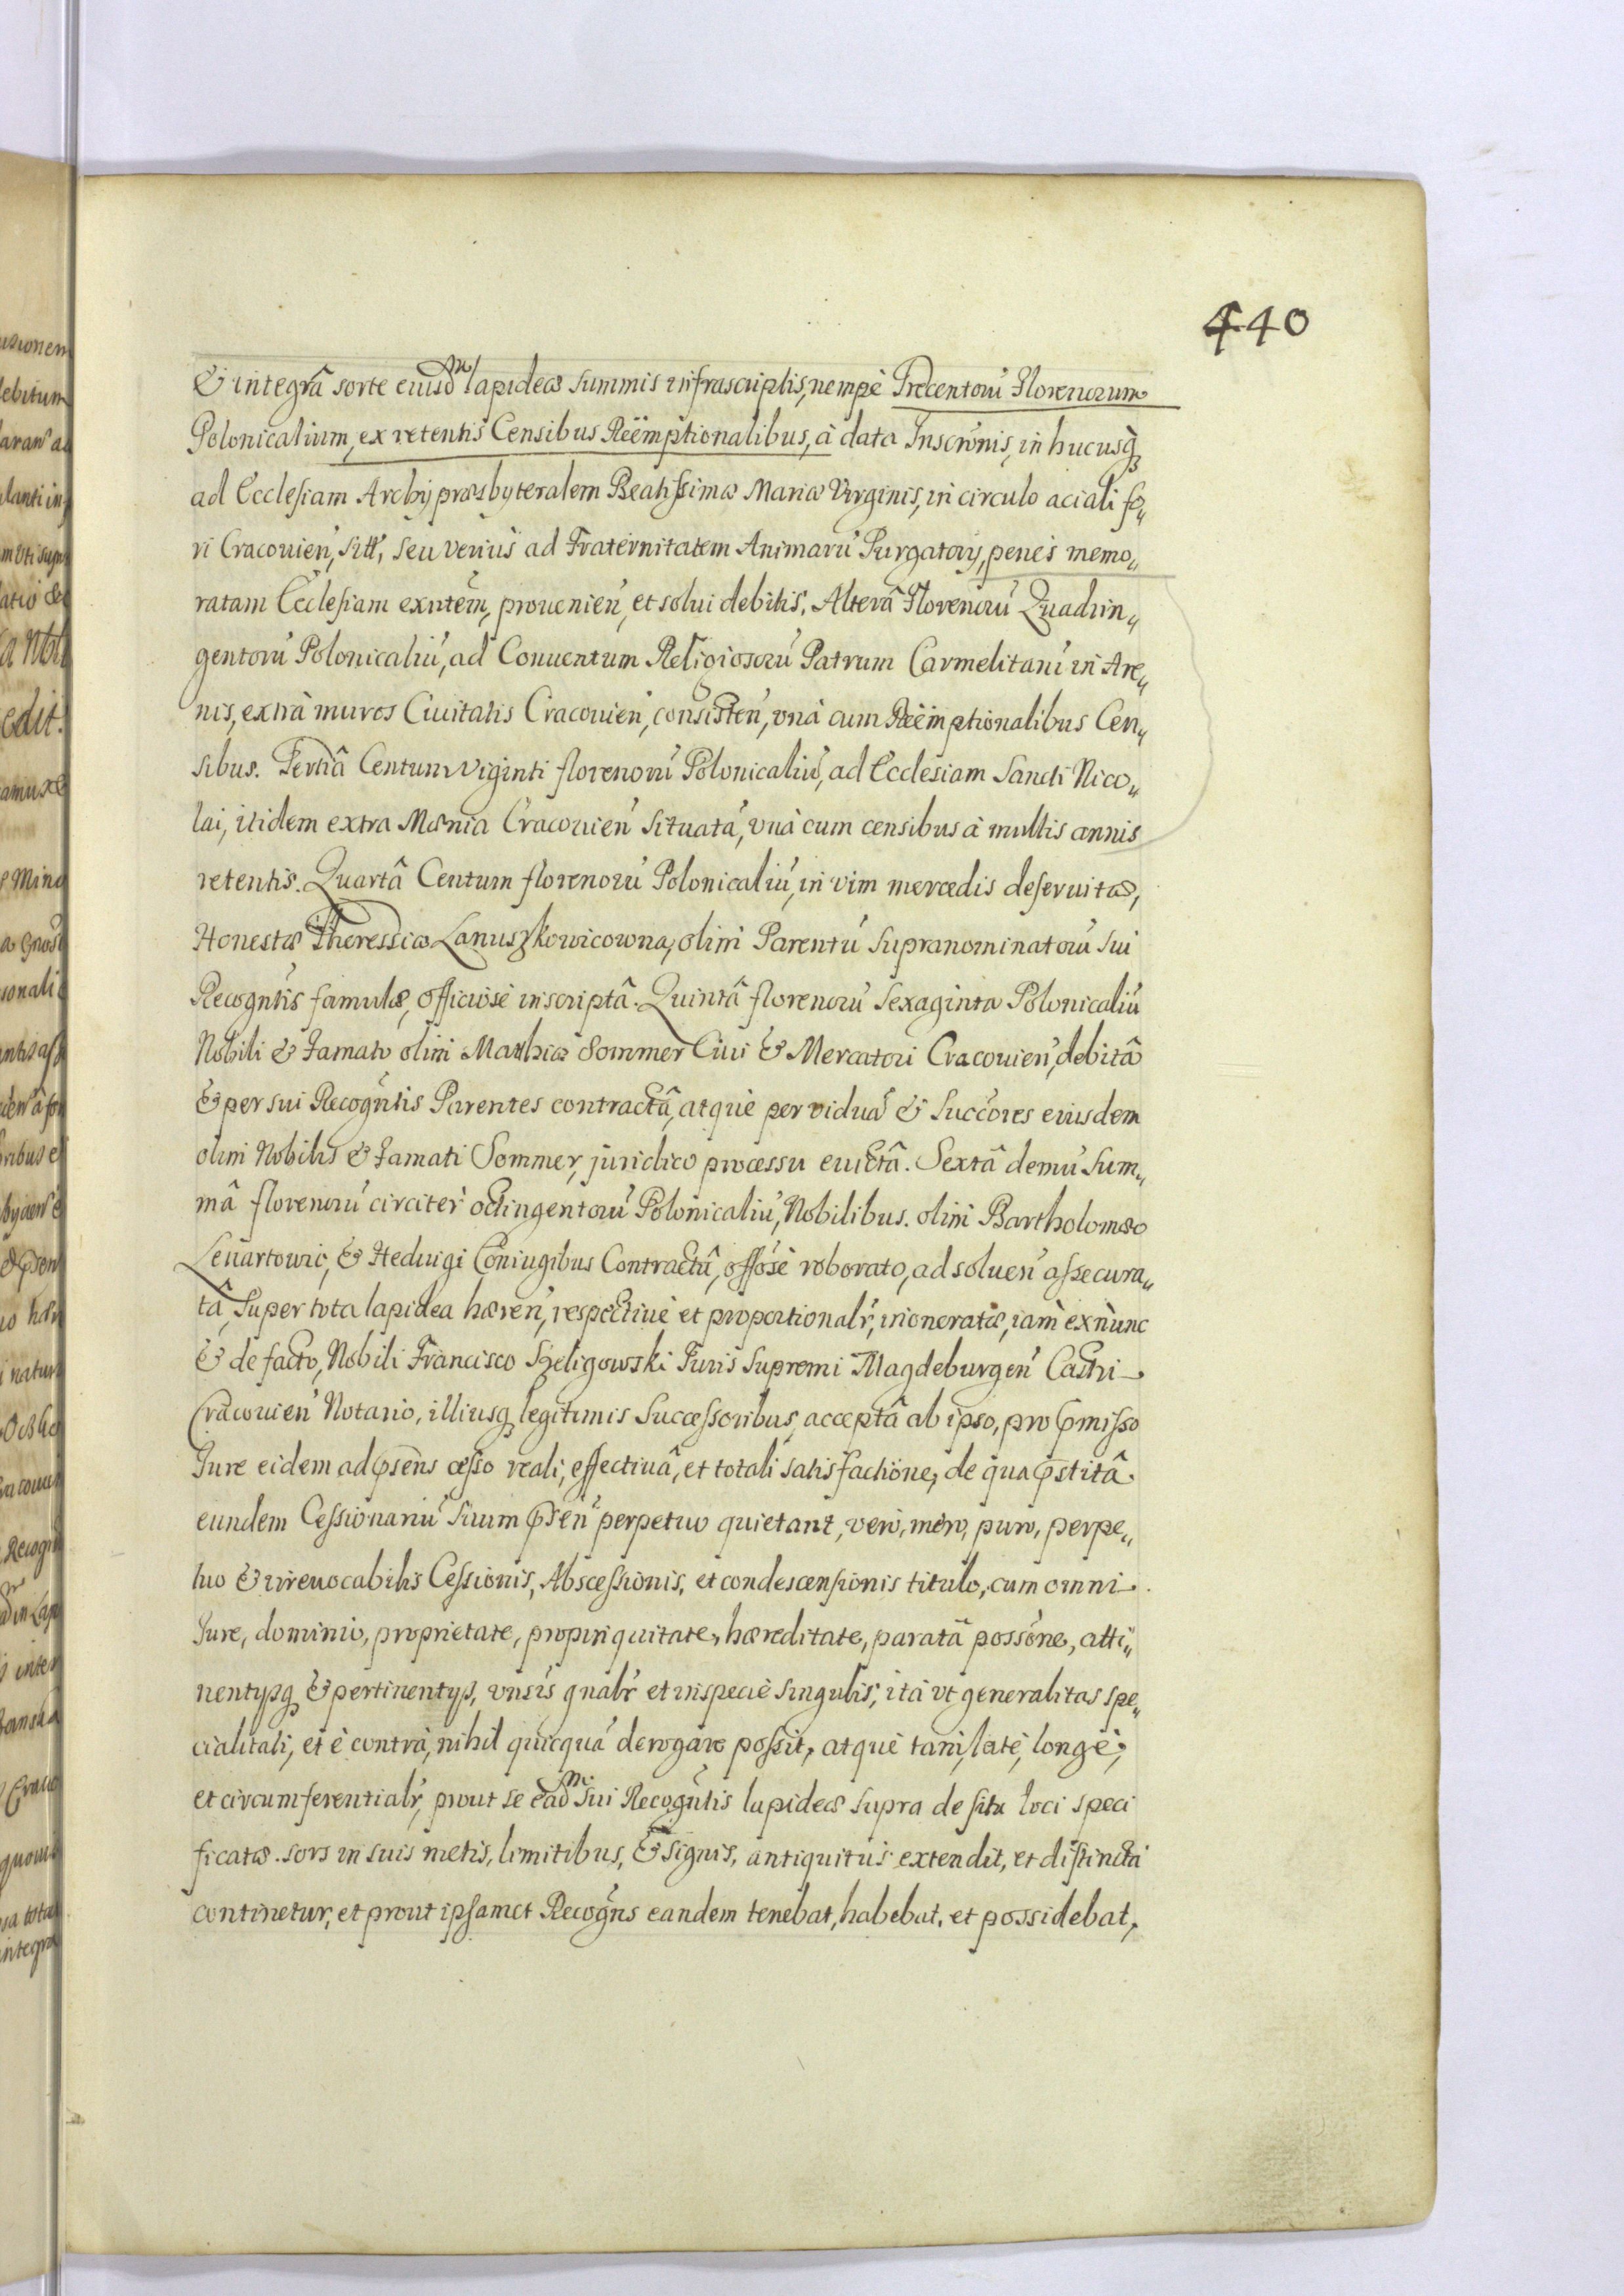 440
& integrâ sorte eiusd͞m lapideæ summis infrascriptis, nempè Trecentorũ Florenorum
Polonicalium, ex retentis Censibus Reëmptionalibus, à data Inscrõnis, in hucusq́ꝫ
ad Ecclesiam Archypræsbyteralem Beatissimæ Mariæ Virginis, in circulo aciali fo„
ri Cracouień, sitt, seu veriùs ad Fraternitatem Animarũ Purgatorÿ, penès memo„
ratam Ecclesiam exñtem, prouenień, et solui debitis. Alterâ Florenorũ Quadrin„
gentorũ Polonicaliũ, ad Conuentum Religiosorũ Patrum Carmelitanũ in Are„
nis, extrà muros Ciuitatis Cracouień, consistEń, vnà cum Reëmptionalibus Cen„
sibus. Tertiâ Centum viginti florenorũ Polonicaliũ, ad Ecclesiam Sancti Nico„
lai, itidem extra Mænia Cracouień situatã, vnà cum censibus à multis annis
retentis. Quartâ Centum florenorũ Polonicaliũ, in vim mercedis deseruitæ,
Honestæ Theressiæ Lanuszkowicowna, olim Parentũ supranominatorũ sui
Recogñtis famulæ, officiosè inscriptâ. Quintâ florenorũ sexaginta Polonicaliũ
Nobili & Famato olim Mathiæ Sommer Ciui & Mercatori Cracouień, debitâ
& per sui Recogñtis Parentes contractâ, atquè per viduã & Succ̃ores eiusdem
olim Nobilis & Famati Sommer, juridico processu euictâ. Sextâ demũ Sum„
mâ florenorũ circitèr octingentorũ Polonicaliũ, Nobilibus. olim Bartholomæo
Leuartowic, & Heduigi Coniugibus Contractû, offõsè roborato, ad soluen̄ assecura„
tâ, Super tota lapidea hæreń, respectiuè et proportionalr̃, inoneratæ, iam̀ exnùnc
& de facto, Nobili Francisco Szeligowski Iuris Supremi Magdeburgeń Castri
Cracouień Notario, illiusqꝫ legitimis Successoribus, acceptâ ab ipso, pro p̄misso
Iure eidem ad p̄sens cesso reali, effectiuâ, et totali satisfactione, de qua p̄stitâ
eundem Cessionariũ suum p̄señ perpetuo quietant, vero, mero, puro, perpe„
tuo & irreuocabilis Cessionis, Abscessionis, et condescensionis titulo, cum omni
Iure, dominio, proprietate, propinquitate, hæreditate, paratâ possõne, atti„
nentÿsqꝫ & pertinentÿs, vnſis gnalr̃ et inspeciè singulis, ità vt generalitas spe„
cialitati, et è contrà, nihil quicquã derogare possit, atquè tam, latè, longè,
et circumferentialr̃, prout se ead͞m sui Recogñtis lapideæ supra de situ loci speci
ficatæ. sors in suis metis, limitibus, & signis, antiquitùs extendit, et distincta
continetur, et prout ipsamet Recogñs eandem tenebat, habebat, et possidebat,